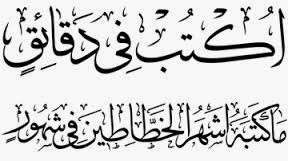 اُكْتُبْ فِي دَقَائِقٍ
مَا كَتَبَهُ أَشْهَرُ الخَطَّاطِينَ فِي شُهُورٍ